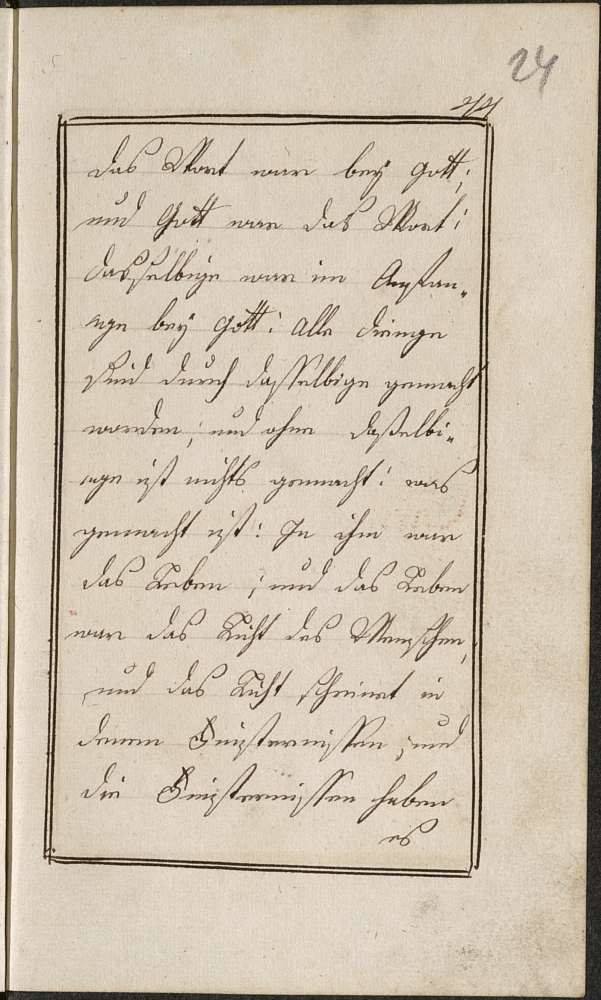 24
44
das Wort war bey Gott;
und Gott war das Wort;
dasselbige war im Anfan„
ge bey Gott: alle dienge
sind durch dasselbige gemacht
worden; und ohne dasselbi„
ge ist nichts gemacht: was
gemacht ist: In ihm war
das Leben; und das Leben
war das Licht des Menschen,
und das Licht scheinet in
denen Feinsternissen, und
die Feinsternissen haben
es